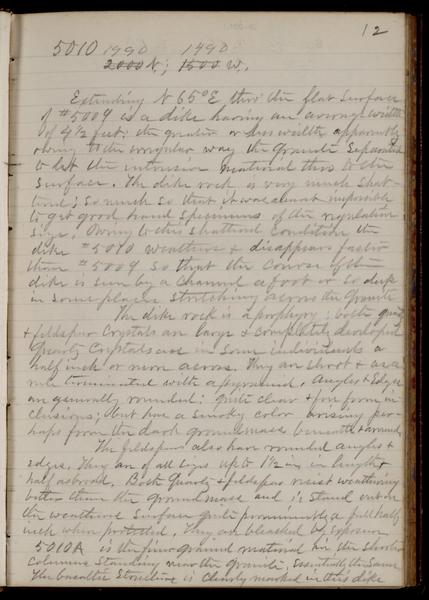 12
5010 1990 1490
2000 N.; 1500 W.
Extending N 65° E thro' the flat surface
of #5009 is a dike having an average width
of 4½ feet; the greater or less width apparently
owing to the irregular way the granite separated
to let the intrusion material thro to the
surface. The dike rock is very much shat-
tered; so much so that it was almost impossible
to get good hand specimens of the regulation
size. Owing to this shattered condition the
dike #5010 weathers & disappears faster
than #5009 so that the course of the
dike is seen by a channel a foot or so deep
in some places stretching across the granite
The dike rock is a porphyry: both quartz
& feldspar crystals are large & completely developed
Quartz crystals are in some individuals a
half inch or more across. They are short & as a
rule terminated with a pyramid. Angles & edges
are generally rounded: quite clear & free from in-
clusions; but have a smoky color arising per-
haps from the dark groundmass beneath & around
The feldspars also have rounded angles &
edges. They are of all sizes up to 1½ in. in length &
half as broad. Both quartz & feldspar resist weathering
better than the groundmass and stand out on
the weathered surface quite prominently a full half
inch when protected. They are bleached by exposure
5010A is the fine ground material in the shorter
columns standing near the granite; essentially the same
The basaltic structure is clearly marked in this dike